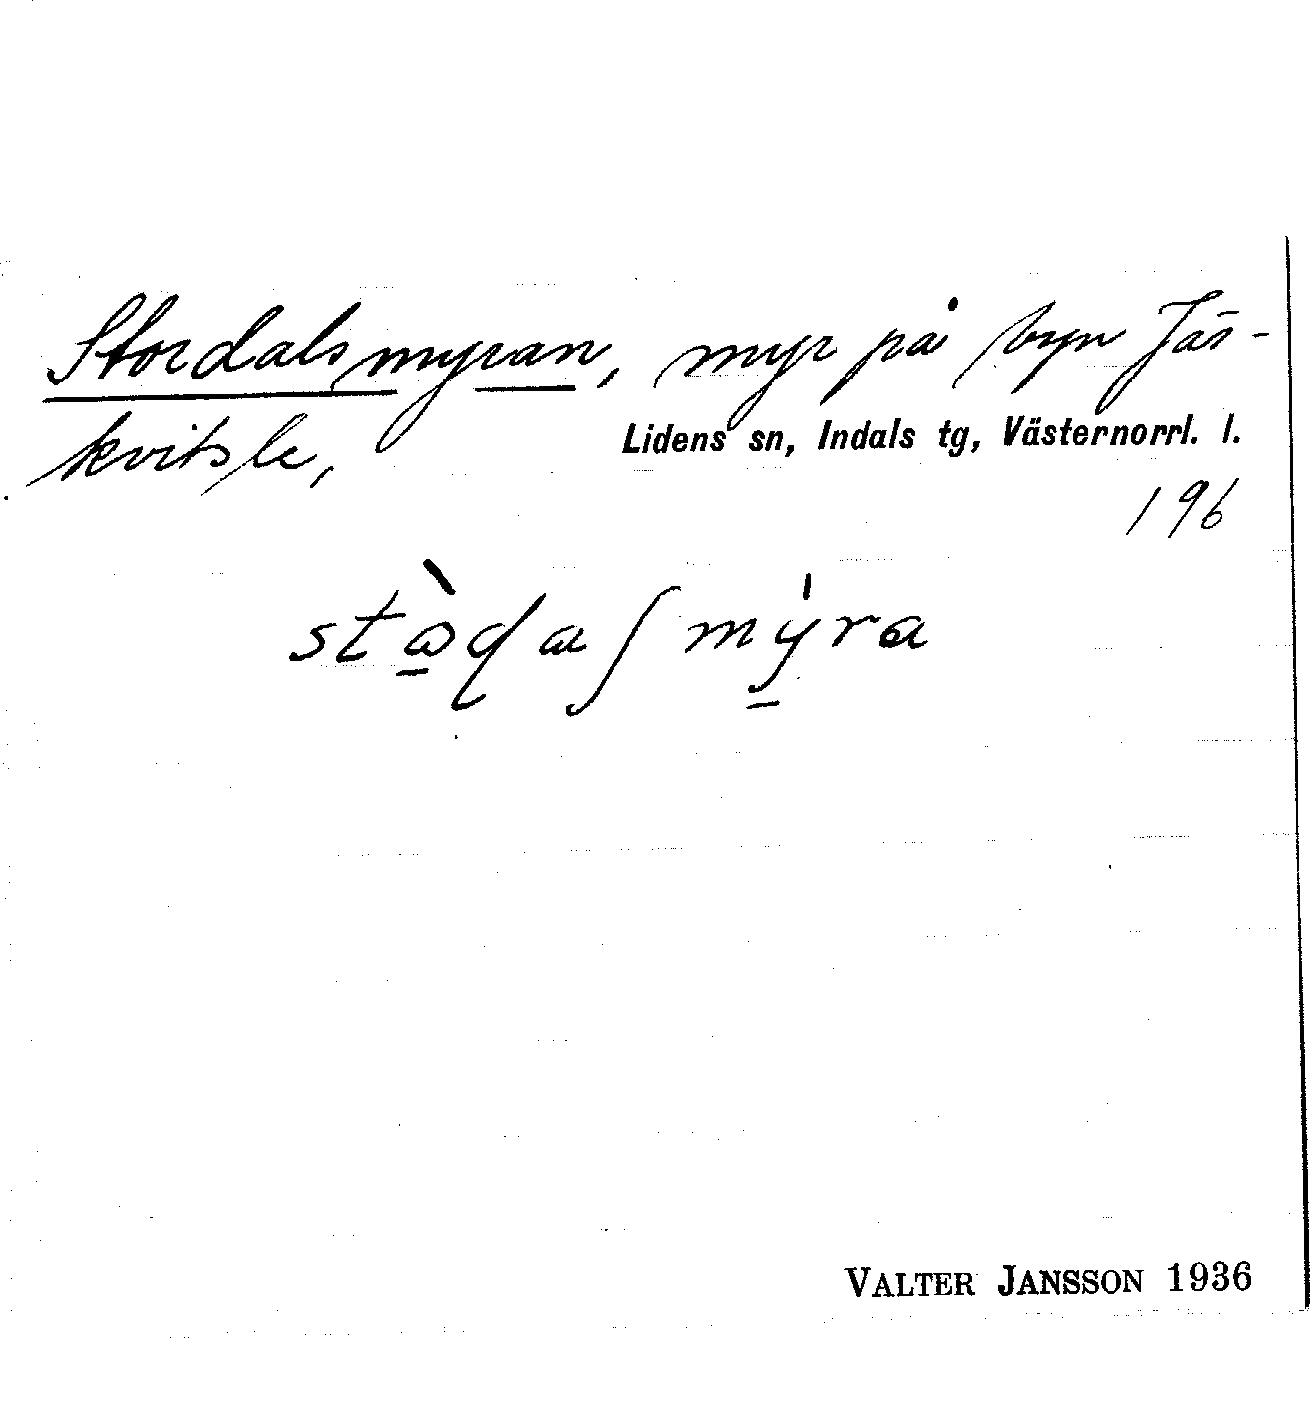 Stordalsmyran, myr på byn Jäs-
kvitsle,
Lidens sn, Indals tg, Västernorrl. l.
196
VALTER JANSSON 1936